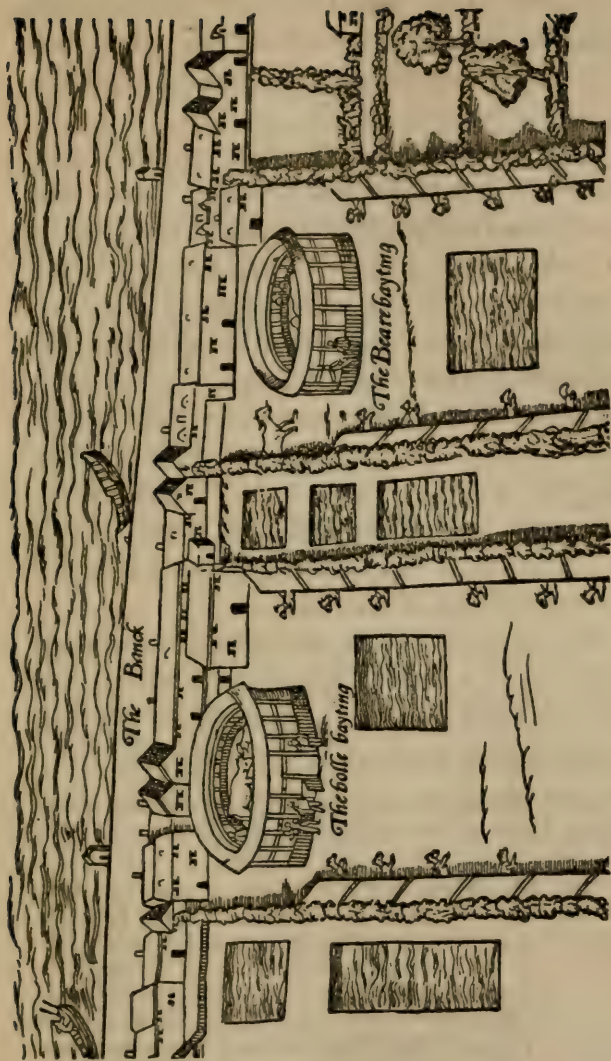 The Banck
The bolle bayting
The Bearebayting